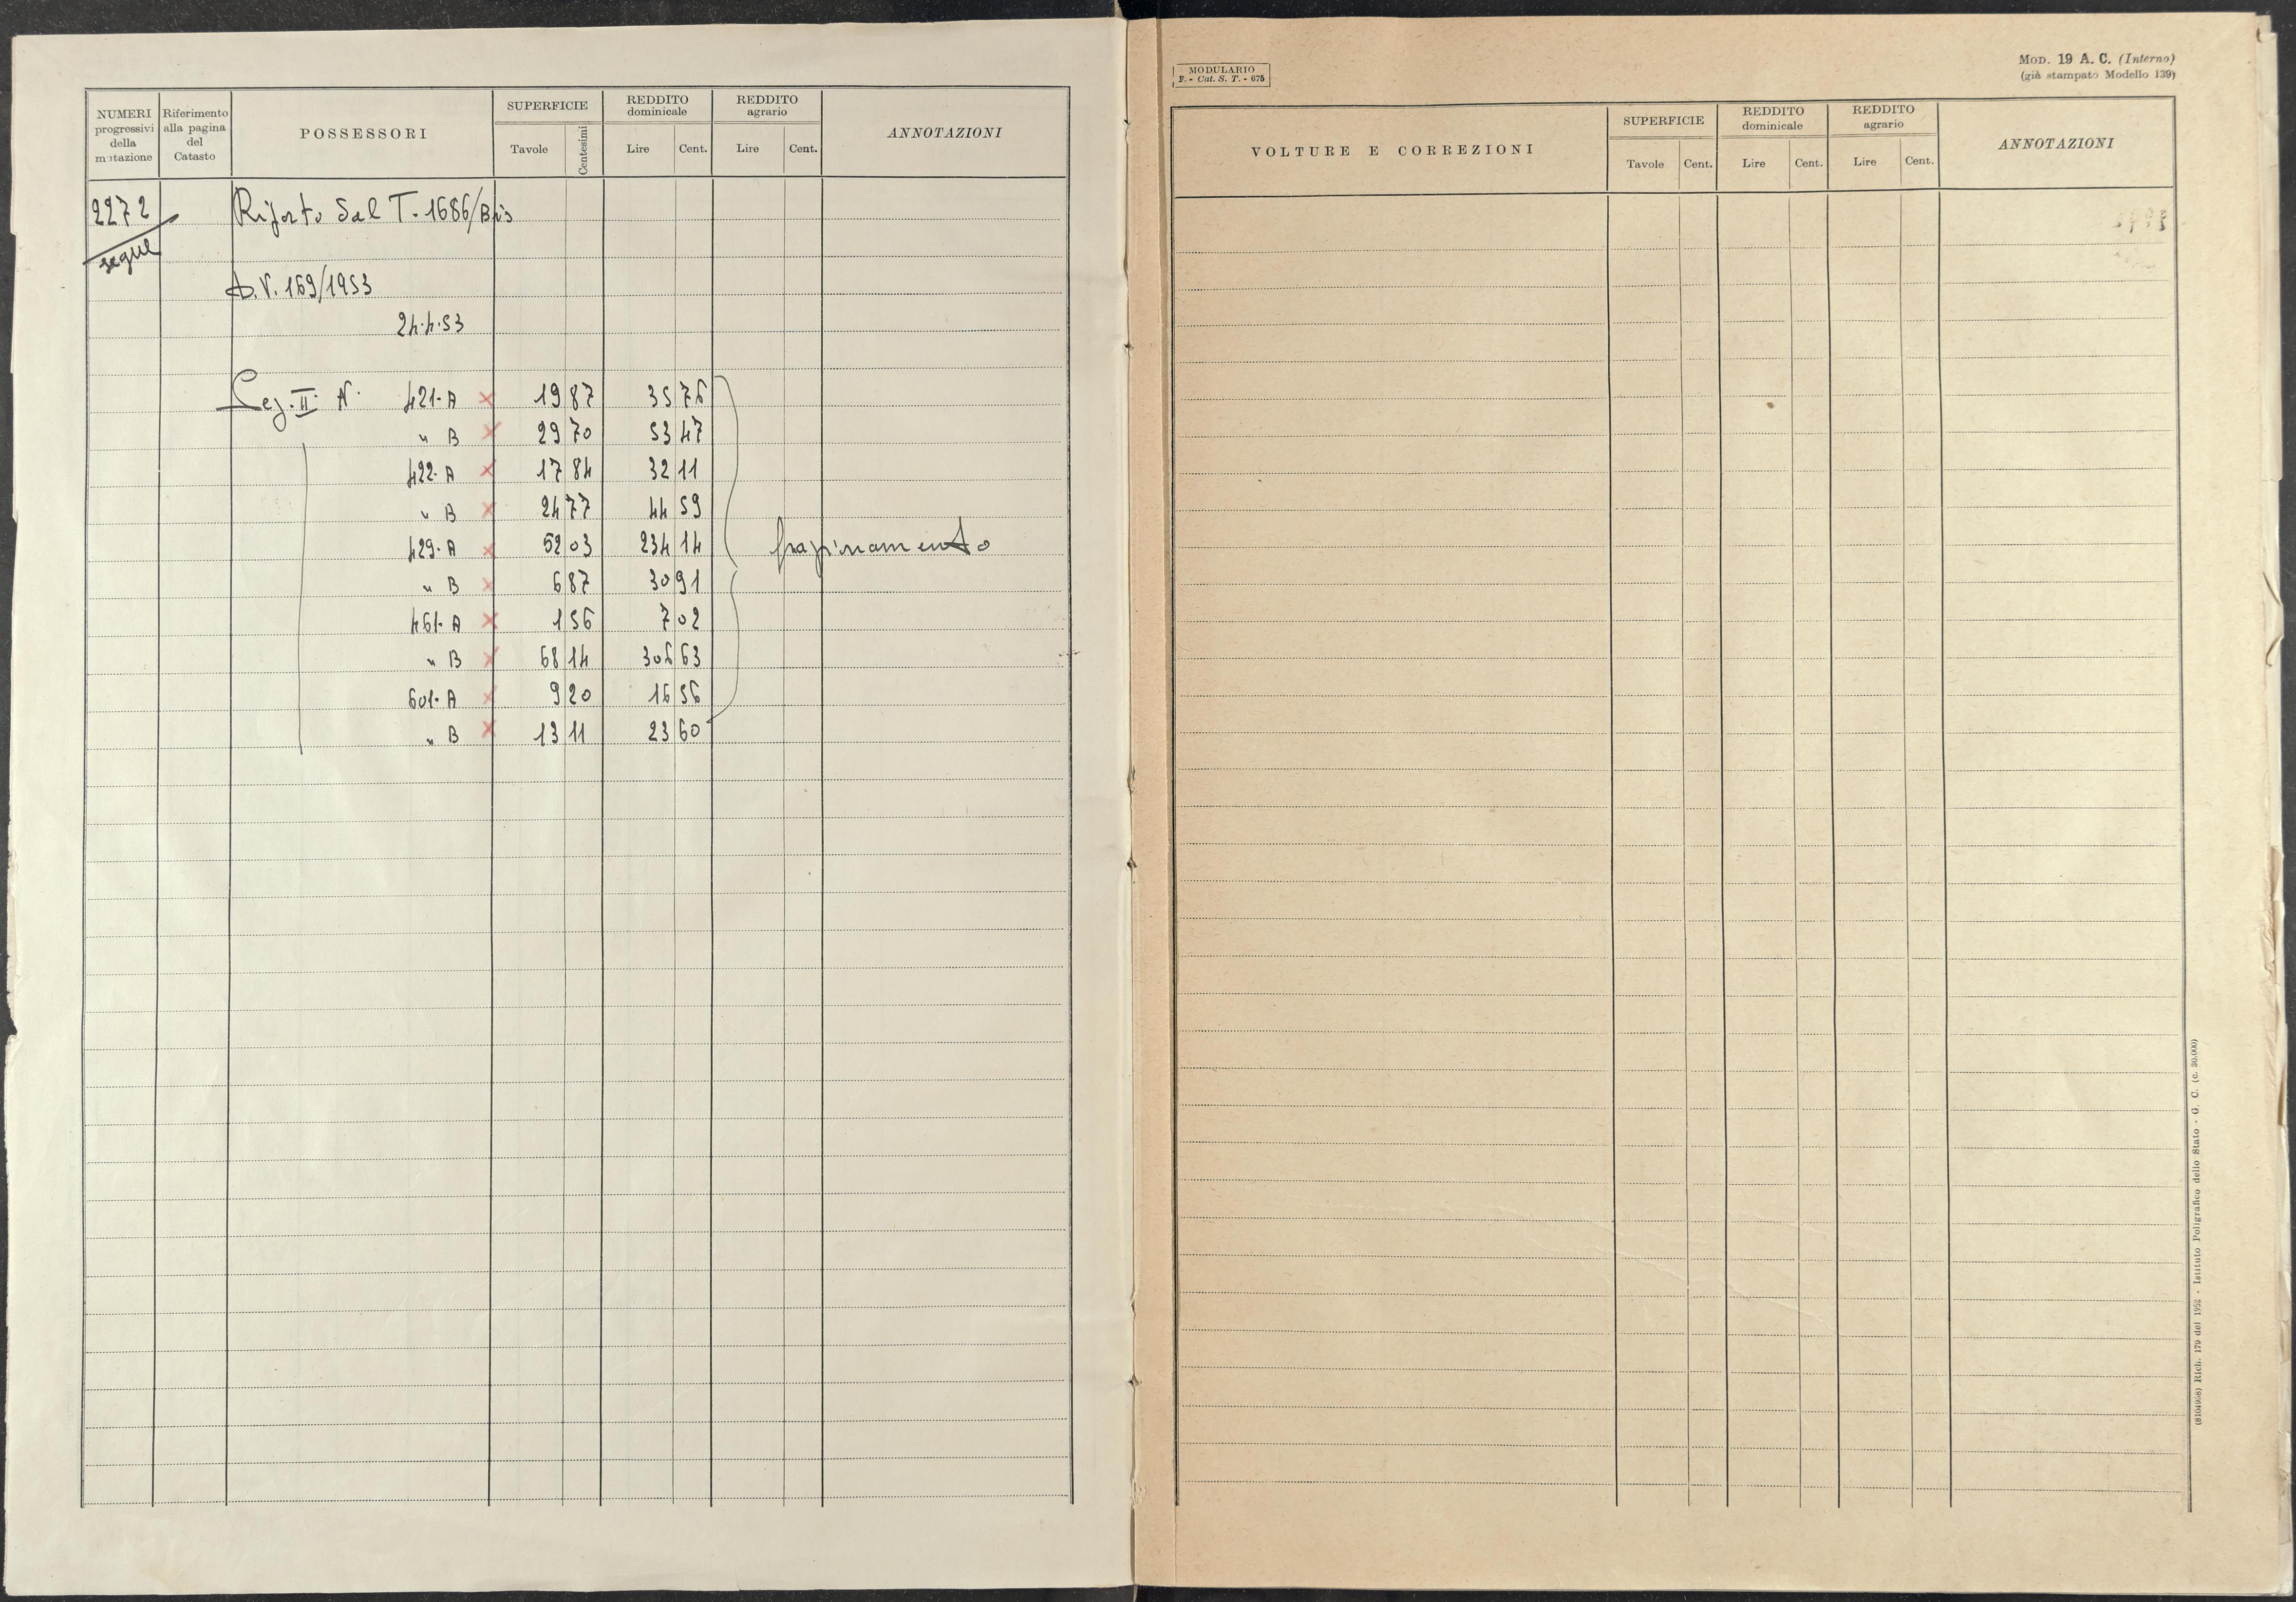 NUMERI progressivi della mutazione
Riferimento alla pagina del Catasto
POSSESSORI
SUPERFICIE
Tavole
Centesimi
REDDITO dominicale
Lire
Cent.
REDDITO agrario
Lire
Cent.
ANNOTAZIONI
2272 Riporto dal T. 1686/Bis
segue
D.V. 169/1953
24.4.53
Sez. II N. 421-A × 19 87 35 76
" B × 29 70 53 47
422-A × 17 84 32 11
" B × 24 77 44 59
429-A × 52 03 234 14 frazionamento
" B × 6 87 30 91
461-A × 1 56 7 02
" B × 68 14 306 63
601-A × 9 20 16 56
" B × 13 11 23 60
MODULARIO
F. - Cat. S. T. - 675
MOD. 19 A. C. (Interno)
(già stampato Modello 139)
VOLTURE E CORREZIONI
SUPERFICIE
Tavole
Cent.
REDDITO dominicale
Lire
Cent.
REDDITO agrario
Lire
Cent.
ANNOTAZIONI
Rich. 179 del 1952 - Istituto Poligrafico dello Stato - G. C. (c. 30.000)